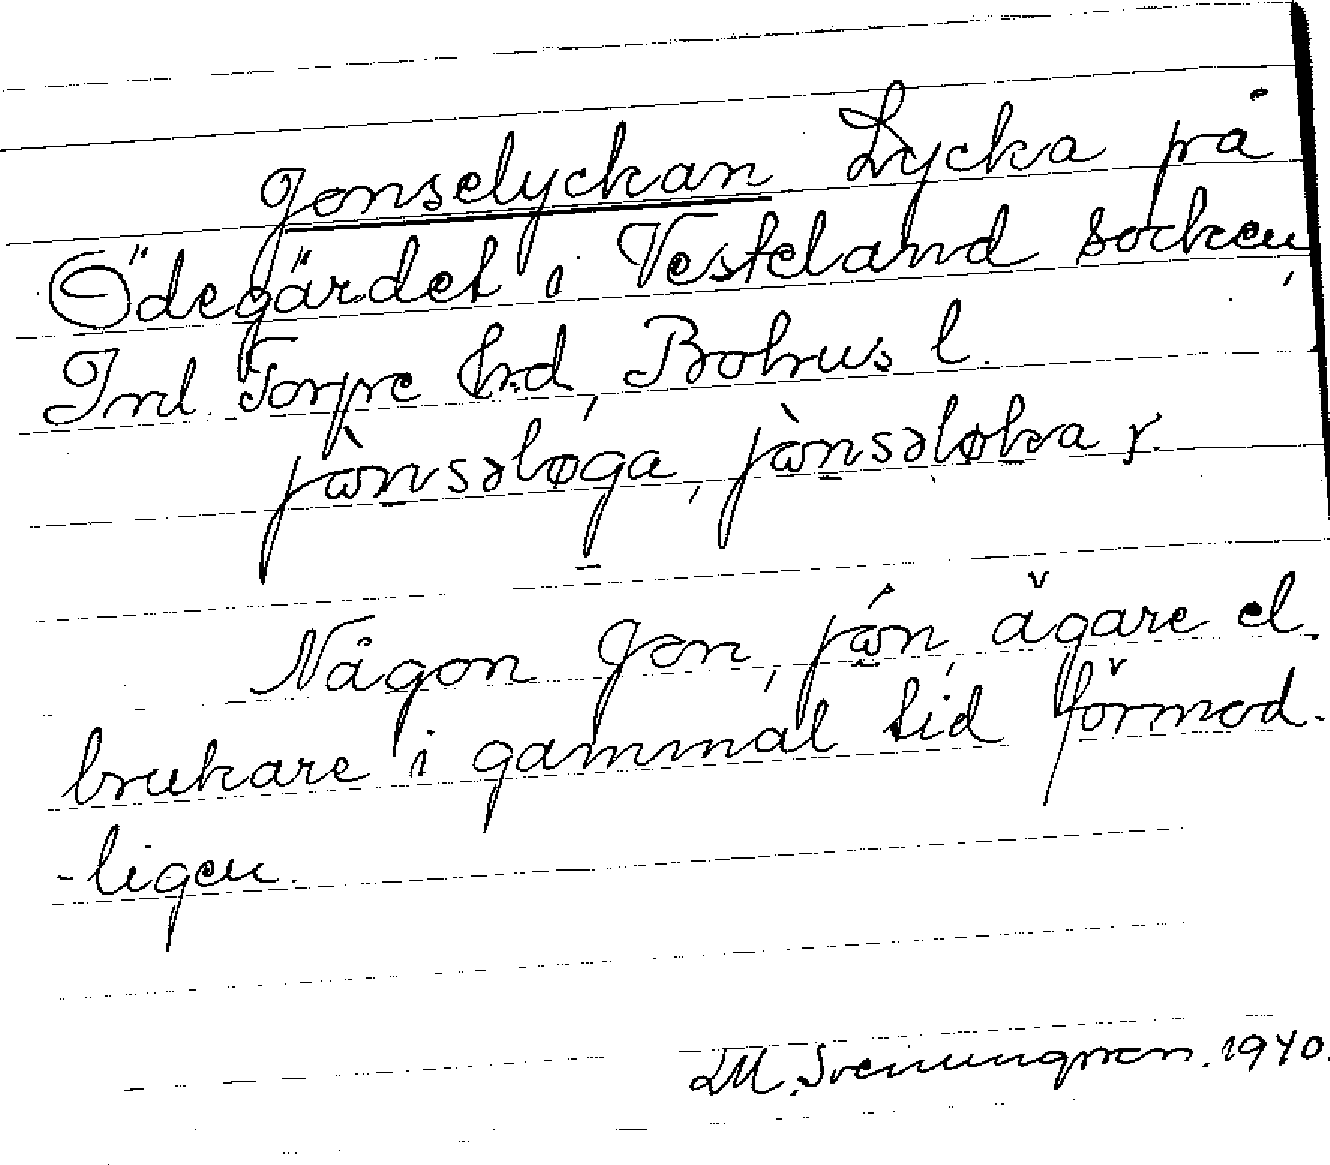 Jonselyckan Lycka på
Ödegärdet i Vesteland socken,
Inl Torpe Hrd, Bohus l.
jɷ̀nsəløga, jɷ̀nsəløka γ.
Någon Jon, jɷ́n, ägare el.
brukare i gammal tid förmod.
-ligen.
M. Svenungson. 1940.